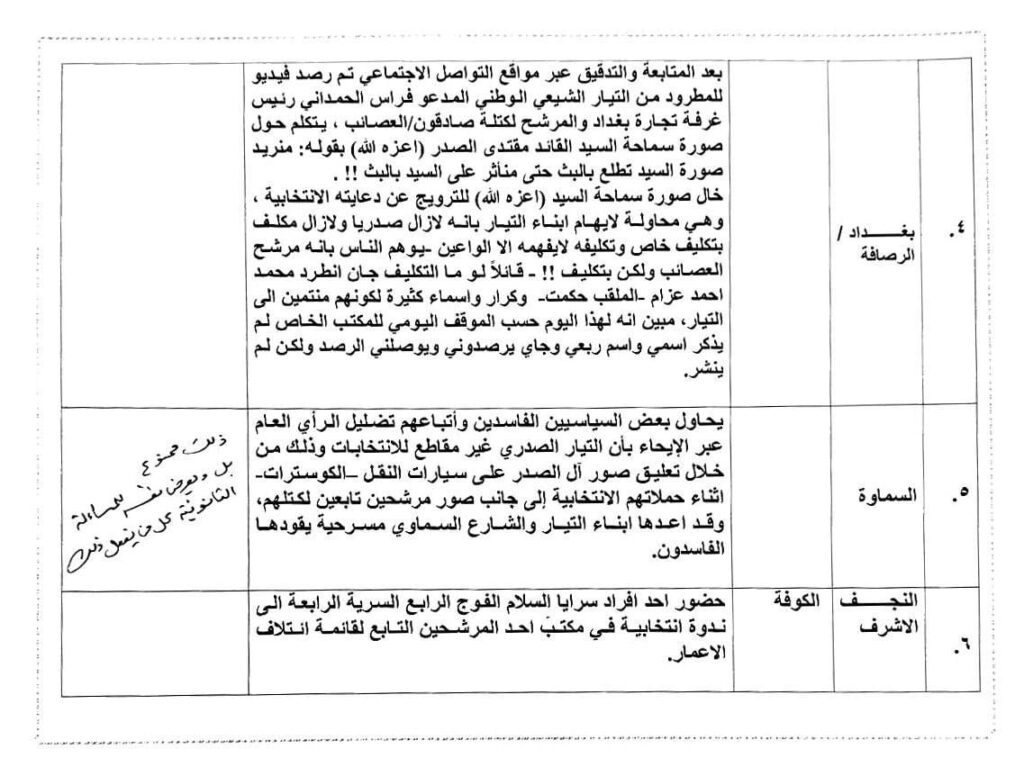 ٤.
بغـــــداد /
الرصافة
بعد المتابعة والتدقيق عبر مواقع التواصل الاجتماعي تم رصد فيديو
للمطرود من التيار الشيعي الوطني المدعو فراس الحمداني رئيس
غرفة تجارة بغداد والمرشح لكتلة صادقون/العصائب ، يتكلم حول
صورة سماحة السيد القائد مقتدى الصدر (اعزه الله) بقوله: منريد
صورة السيد تطلع بالبث حتى منأثر على السيد بالبث !! .
خال صورة سماحة السيد (اعزه الله) للترويج عن دعايته الانتخابية ،
وهي محاولة لايهام ابناء التيار بانه لازال صدريا ولازال مكلف
بتكليف خاص وتكليفه لايفهمه الا الواعين -يوهم الناس بانه مرشح
العصائب ولكن بتكليف !! - قائلاً لو ما التكليف جان انطرد محمد
احمد عزام -الملقب حكمت- وكرار واسماء كثيرة لكونهم منتمين الى
التيار، مبين انه لهذا اليوم حسب الموقف اليومي للمكتب الخاص لم
يذكر اسمي واسم ربعي وجاي يرصدوني ويوصلني الرصد ولكن لم
ينشر.
٥.
السماوة
يحاول بعض السياسيين الفاسدين وأتباعهم تضليل الرأي العام
عبر الإيحاء بأن التيار الصدري غير مقاطع للانتخابات وذلك من
خلال تعليق صور آل الصدر على سيارات النقل –الكوسترات-
اثناء حملاتهم الانتخابية إلى جانب صور مرشحين تابعين لكتلهم،
وقد اعدها ابناء التيار والشارع السماوي مسرحية يقودها
الفاسدون.
ذلك ممنوع
بل ويعرض نفسه للمساءلة
القانونية كل من يفعل ذلك
٦.
النجـــف
الاشرف
الكوفة
حضور احد افراد سرايا السلام الفوج الرابع السرية الرابعة الى
ندوة انتخابية في مكتب احد المرشحين التابع لقائمة ائتلاف
الاعمار.